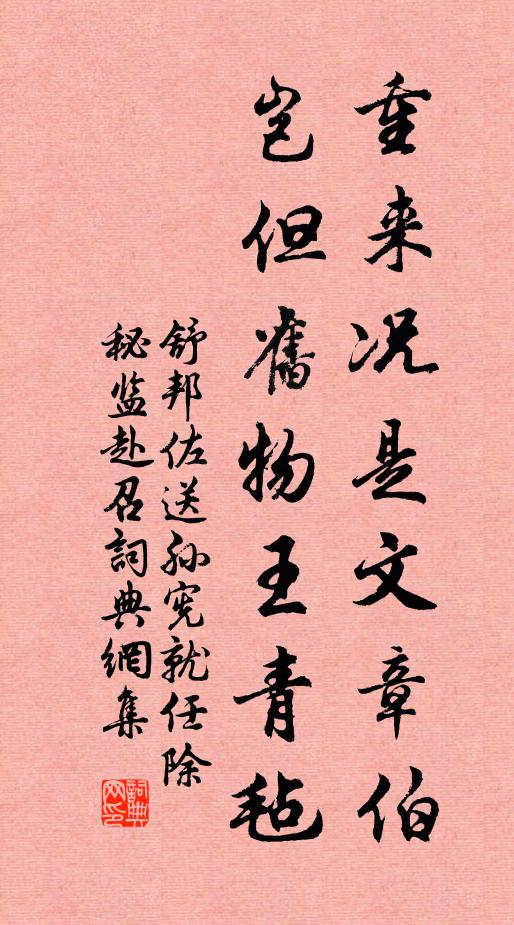 重来况是文章伯
岂但舊物王青毡
舒邦佐送孙宪就任除
秘监赴召詞典網集
詞典网印